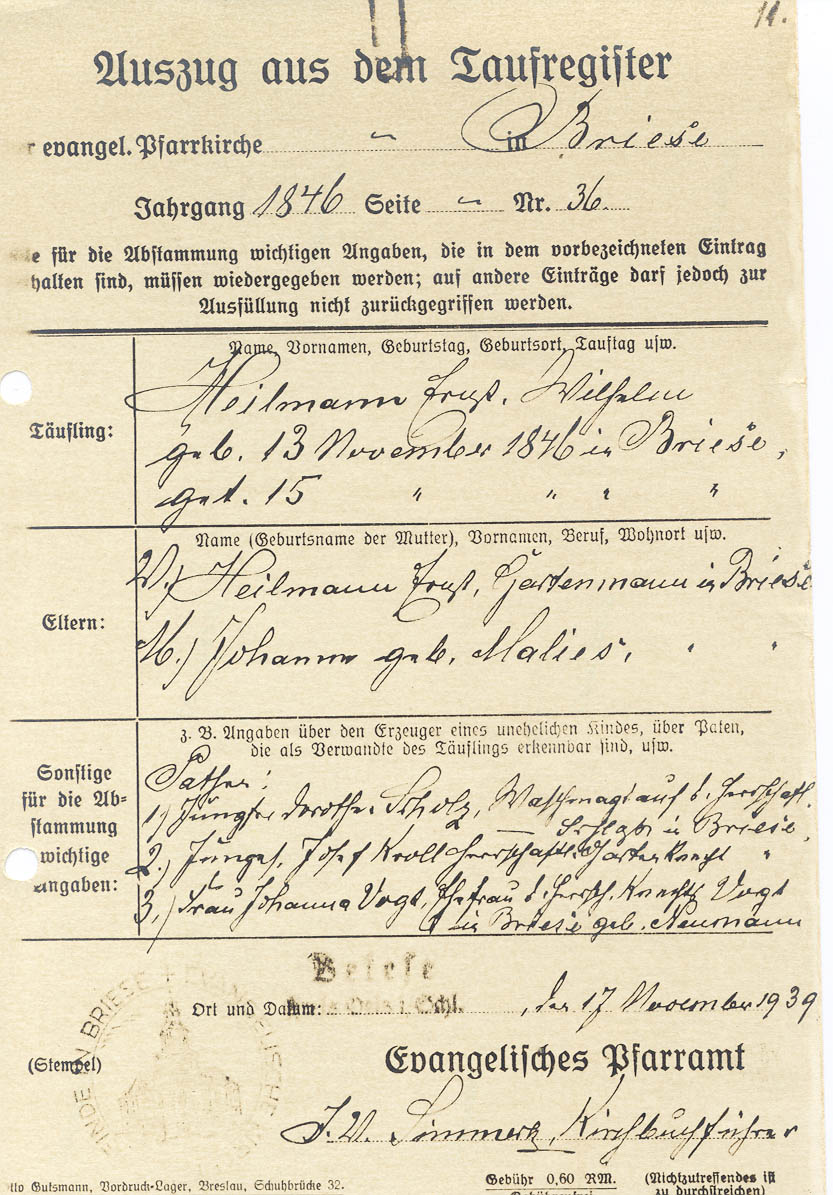 11.
Auszug aus dem Taufregister
r evangel. Pfarrkirche " in Briese
Jahrgang 1846 Seite " Nr. 36.
e für die Abstammung wichtigen Angaben, die in dem vorbezeichneten Eintrag
halten sind, müssen wiedergegeben werden; auf andere Einträge darf jedoch zur
Ausfüllung nicht zurückgegriffen werden.
Name, Vornamen, Geburtstag, Geburtsort, Tauftag usw.
Täufling:
Heilmann Ernst, Wilhelm
geb. 13 November 1846 in Briese,
get. 15 " " " "
Name (Geburtsname der Mutter), Vornamen, Beruf, Wohnort usw.
Eltern:
V.) Heilmann Ernst, Gartenmann in Briese
M.) Johanne geb. Malies, " "
z. B. Angaben über den Erzeuger eines unehelichen Kindes, über Paten,
die als Verwandte des Täuflings erkennbar sind, usw.
Sonstige
für die Ab-
stammung
wichtige
Angaben:
Pathen:
1.) Jungfer Dorothe. Scholz, Waschmagd auf d. herrschaftl.
— Schloß in Briese,
2.) Jungges. Josef Kroll herrschaftl. Gartenknecht "
3.) Frau Johanna Vogt, Ehefrau d. herrsch. Knechts Vogt
in Briese geb. Neumann
Briese
Ort und Datum: Oels i. Schl. , den 17 November 1939
INDE IN BRIESE
(Stempel)
Evangelisches Pfarramt
J.V. Kirchbuchführer
tto Gutsmann, Vordruck-Lager, Breslau, Schuhbrücke 32.
Gebühr 0,60 RM.
(Nichtzutreffendes ist
zu durchstreichen)